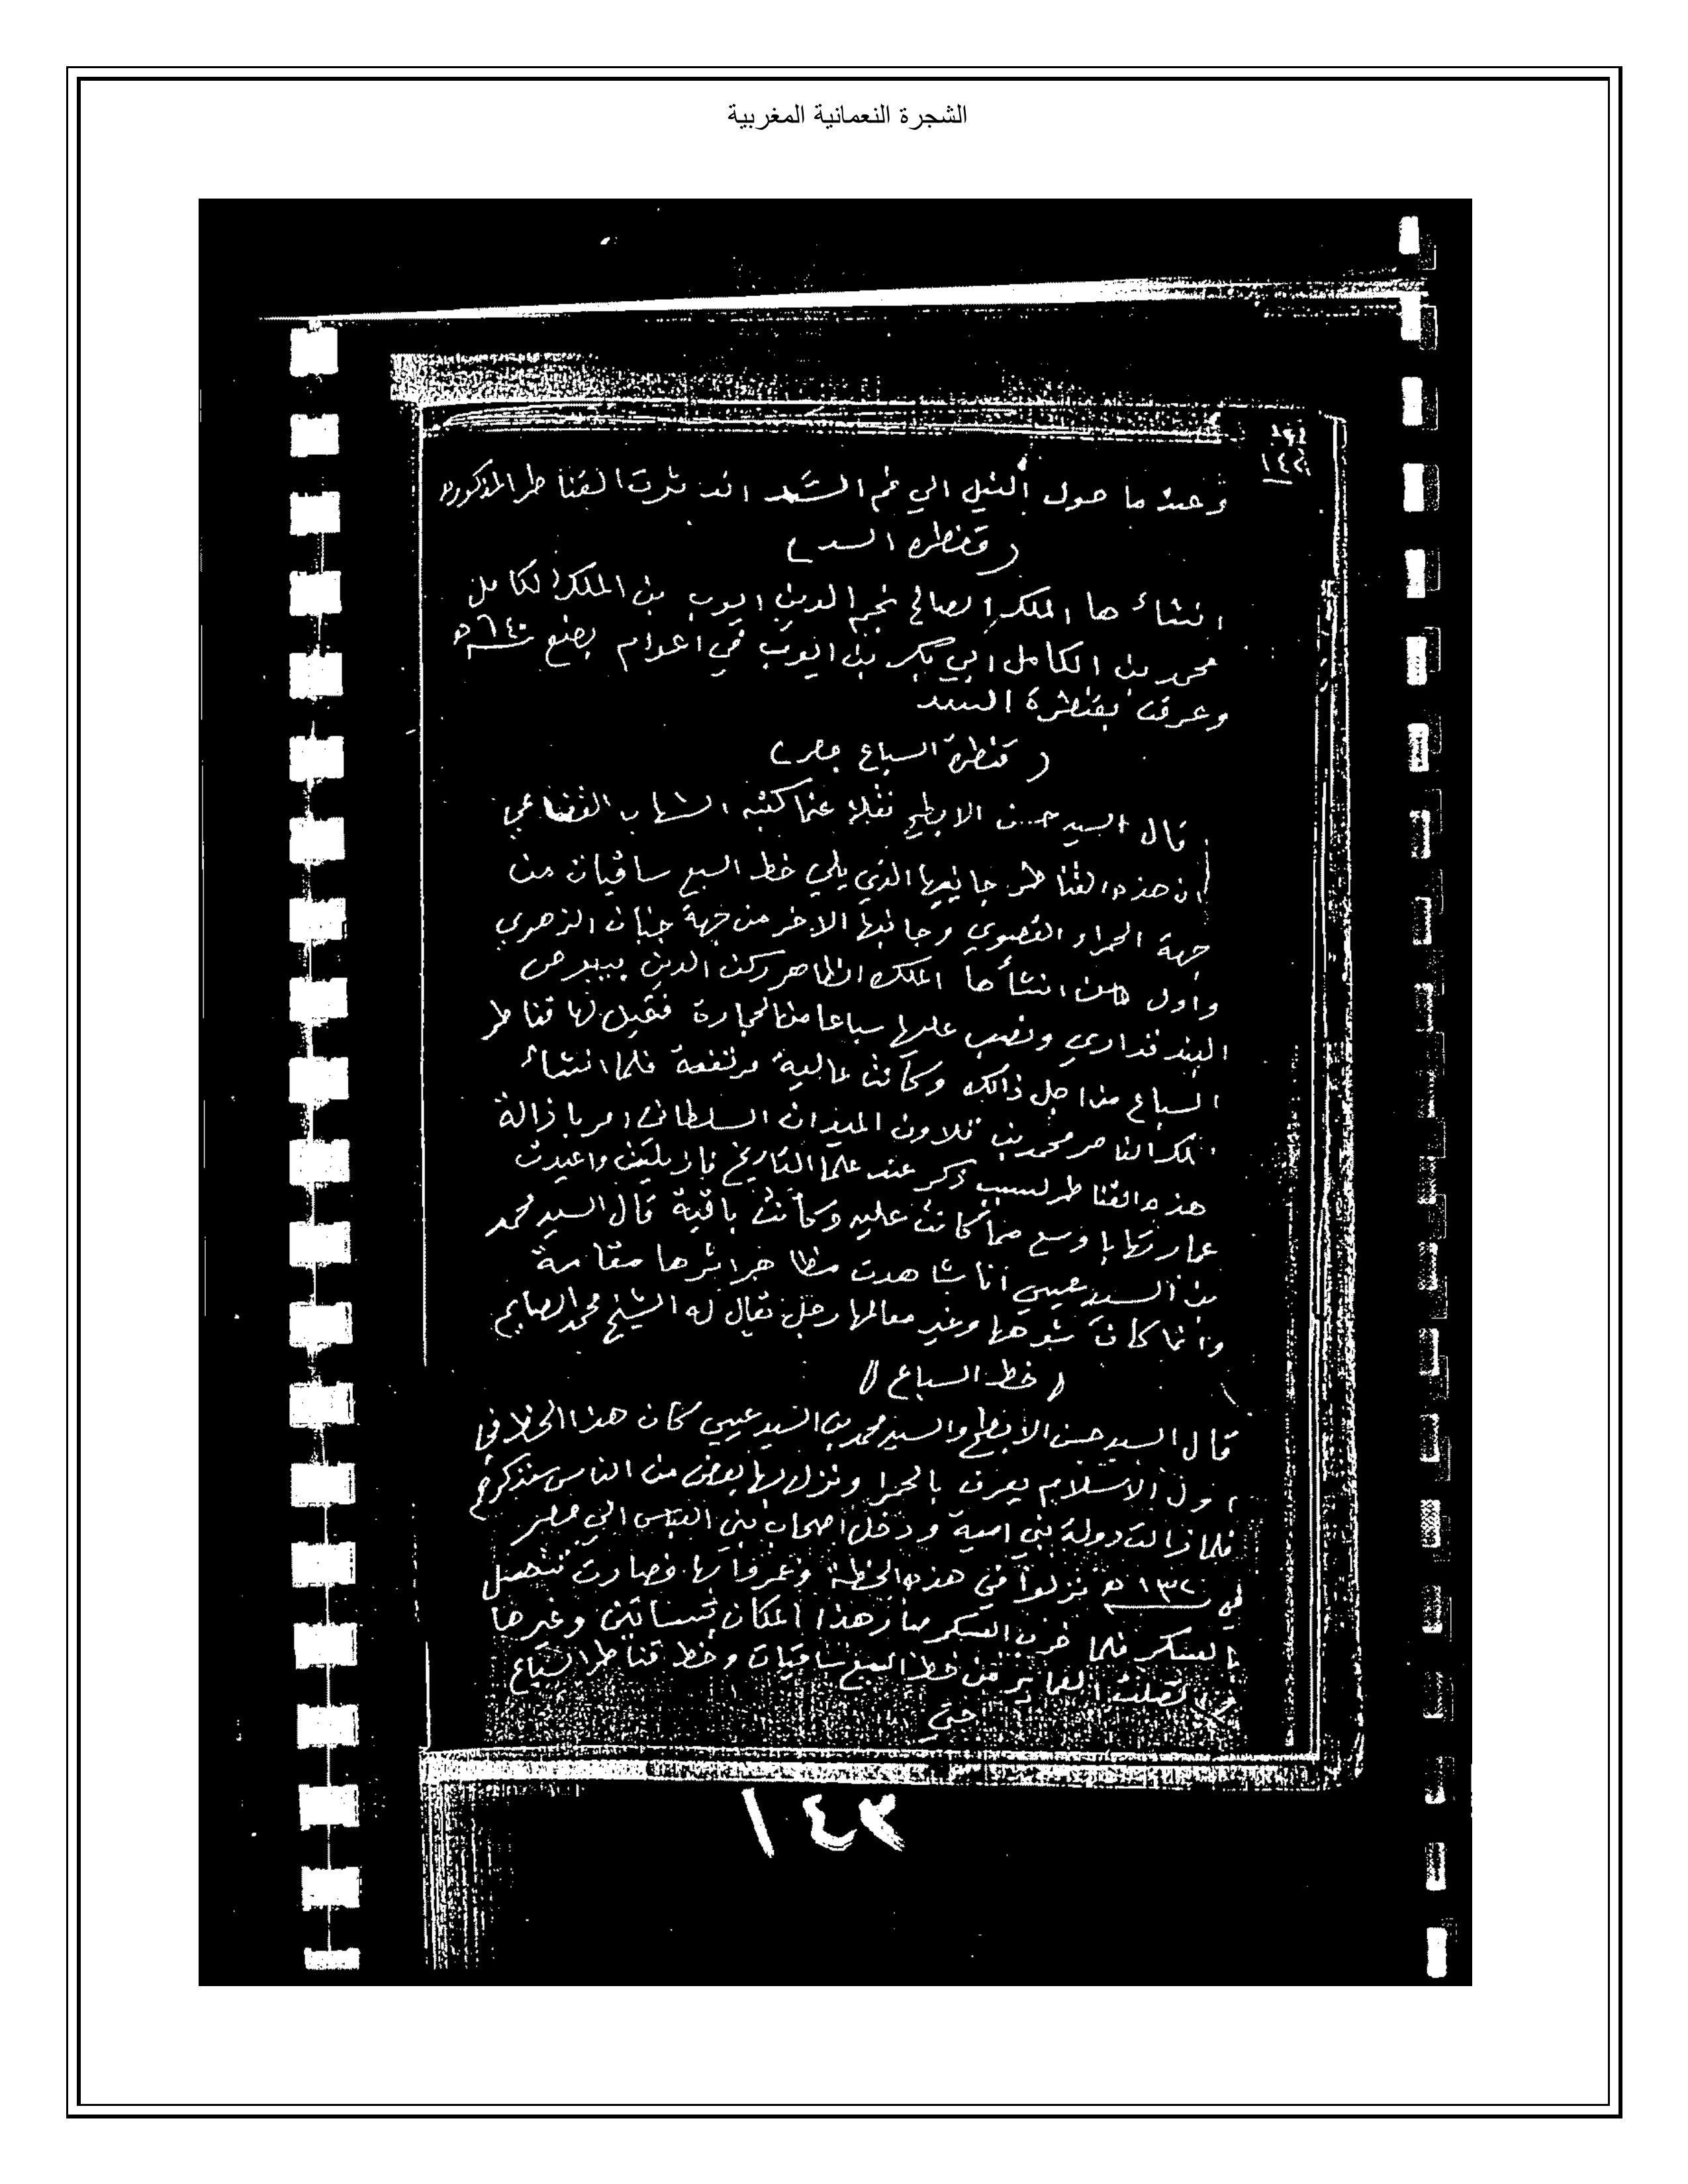 الشجرة النعمانية المغربية
وعند ما حول النيل الي فم السد اندثرت القناطر المذكوره
(قنطره السد)
انشاء ها الملك الصالح نجم الدين ايوب بن الملك الكامل
محمد بن الكامل ابي بكر بن ايوب في اعوام بضع ٦٤٠ ه
وعرفت بقنطرة السد
(قنطرة السباع بمصر)
قال السيد حسن الابطح نقلا عما كتبه الشهاب القضاعي
ان هذه القناطر جانبها الذي يلي خط السبع ساقيات من
جهة الحمراء القصوي وجانبها الاخر من جهة جنبان الزهري
واول من انشأها الملك الظاهر ركن الدين بيبرص
البندقداري ونصب عليها سباعا من الحجارة فقيل لها قناطر
السباع من اجل ذالك وكانت عالية مرتفعة فلما انشاء
الملك الناصر محمد بن قلاون الميدان السلطاني امر بازالة
هذه القناطر لسبب ذكر عند علما التاريخ فازيلت واعيدت
عمارتها باوسع مما كانت عليه وكانت باقية قال السيد محمد
بن السيد عيسي انا شاهدت مظاهر اثرها مقامة
وانما كان شوهها وغير معالمها رجل يقال له الشيخ محمد الصايم
(خط السباع)
قال السيد حسن الابطح والسيد محمد بن السيد عيسي كان هذا الخط في
اول الاسلام يعرف بالحمرا ونزل بها بعض من الناس سنذكرهم
فلما زالت دولة بني امية ودخل اصحاب بني العباس الي مصر
في ١٣٢ ه نزلوا في هذه الخطة وعمروا بها فصارت تتصل
بالعسكر فلما خرب العسكر صار هذا المكان بساتين وغيرها
اتصلت العماير من خط السبع ساقيات وخط قناطر السباع
حتى
١٤٢